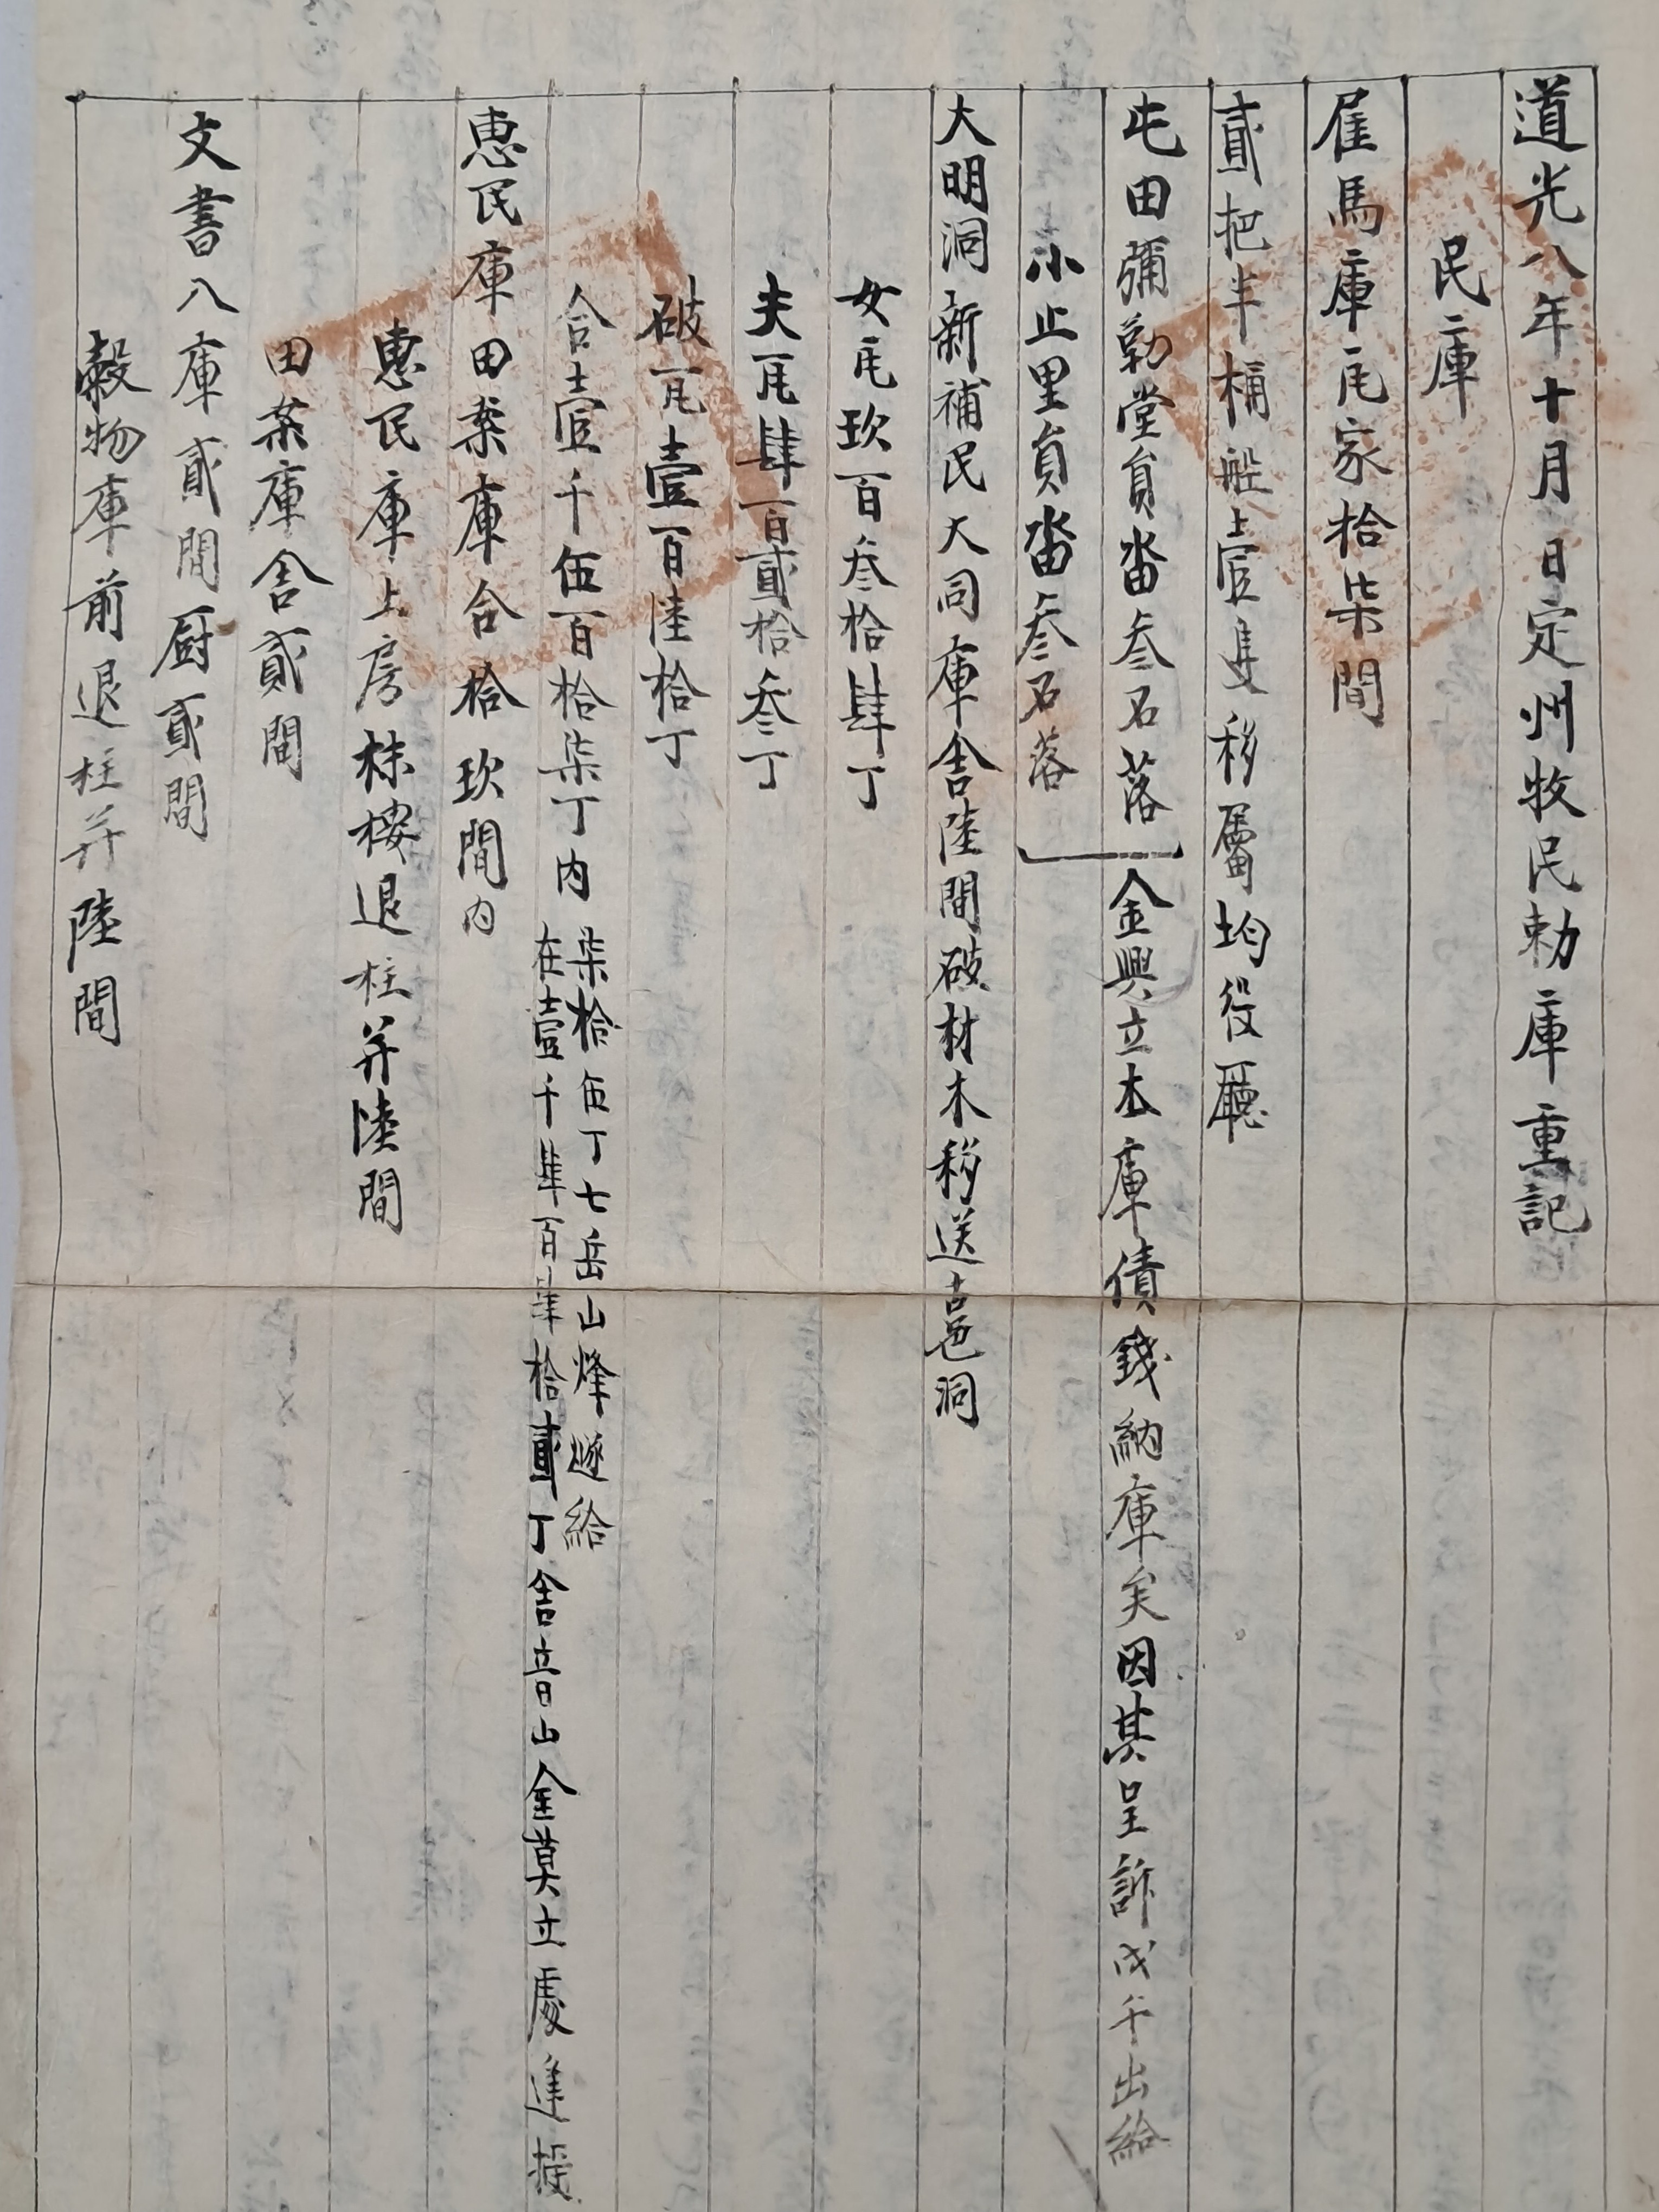 道光八年十月日定州牧民勅庫重記
民庫
雇馬庫瓦家拾柒間
貳把半桶船壹隻移屬均役廳
屯田彌勒堂員畓叁石落
小止里員畓叁石落
金興立本庫債錢納庫矣因其呈訴戊子出給
大明洞新補民大同庫舍陸間破材木移送古邑洞
女瓦玖百叁拾肆丁
夫瓦肆百貳拾叁丁
破瓦壹百陸拾丁
合壹千伍百拾柒丁內
柒拾伍丁七岳山烽燧給
在壹千肆百肆拾貳丁舍音山金莫立處逢授
惠民庫田案庫合拾玖間內
惠民庫上房抹樓退柱并陸間
田案庫舍貳間
文書八庫貳間厨貳間
穀物庫前退柱并陸間